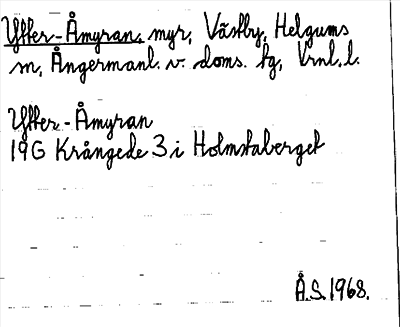 Ytter-Åmyran, myr, Västby, Helgums
sn, Ångermanl. v. doms. fg, Vrnl. l.
Ytter-Åmyran
19G Krångede 3 i Holmstaberget
Å.S. 1968.